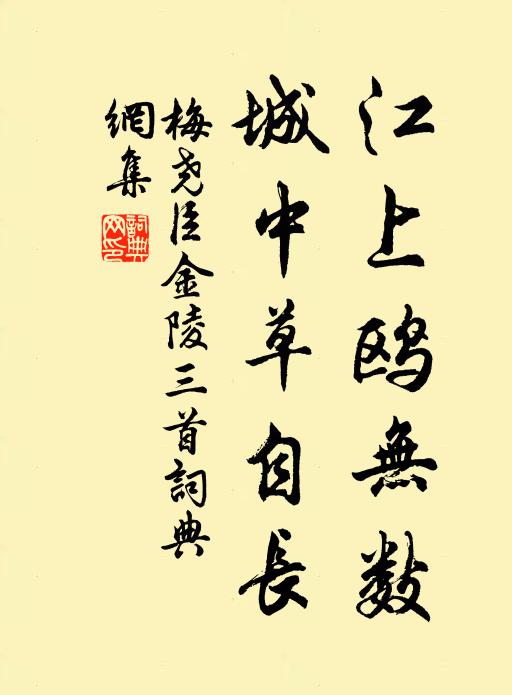 江上鸥無数
城中草自長
梅尧臣金陵三首詞典
網集
詞典
网印